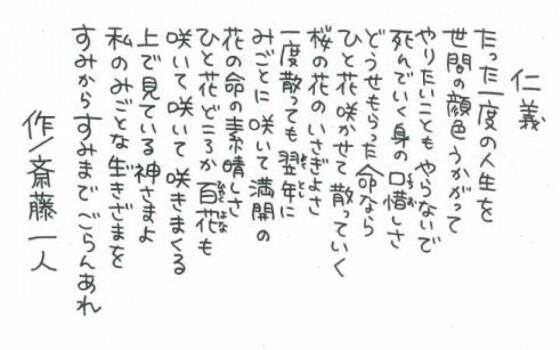 仁義
たった一度の人生を
世間の顔色うかがって
やりたいこともやらないで
死んでいく身の口惜しさ
どうせもらった命なら
ひと花咲かせて散っていく
桜の花のいさぎよさ
一度散っても翌年に
みごとに咲いて満開の
花の命の素晴しさ
ひと花どころか百花も
咲いて咲いて咲きまくる
上で見ている神さまよ
私のみごとな生きざまを
すみからすみまでごらんあれ
作/斎藤一人